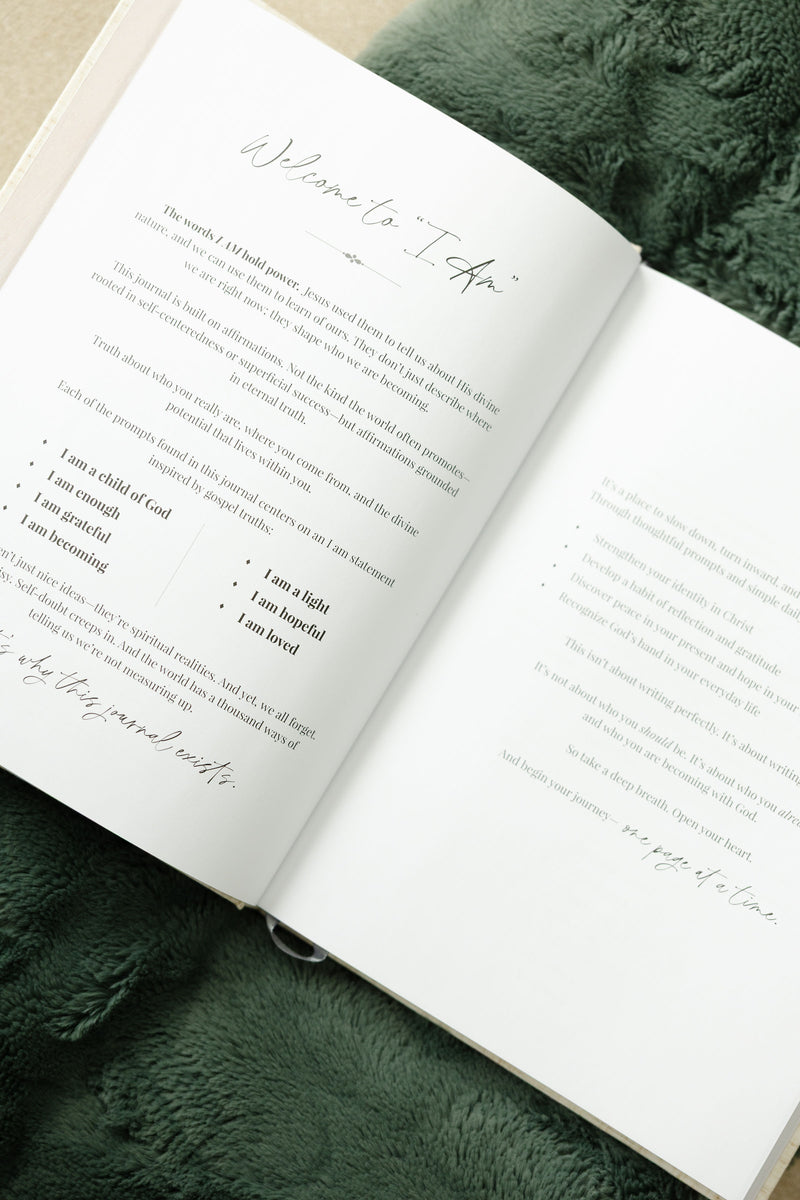 Welcome to "I Am"
The words I AM hold power. Jesus used them to tell us about His divine
nature, and we can use them to learn of ours. They don't just describe where
we are right now; they shape who we are becoming.
This journal is built on affirmations. Not the kind the world often promotes—
rooted in self-centeredness or superficial success—but affirmations grounded
in eternal truth.
Truth about who you really are, where you come from, and the divine
potential that lives within you.
Each of the prompts found in this journal centers on an I am statement
inspired by gospel truths:
♦ I am a child of God
♦ I am enough
♦ I am grateful
♦ I am becoming
♦ I am a light
♦ I am hopeful
♦ I am loved
just nice ideas—they're spiritual realities. And yet, we all forget.
Self-doubt creeps in. And the world has a thousand ways of
telling us we're not measuring up.
why this journal exists.
It's a place to slow down, turn inward, and
Through thoughtful prompts and simple
♦ Strengthen your identity in Christ
♦ Develop a habit of reflection and gratitude
♦ Discover peace in your present and hope in your
♦ Recognize God's hand in your everyday life
This isn't about writing perfectly. It's about
It's not about who you should be. It's about who you
and who you are becoming with God.
So take a deep breath. Open your heart.
And begin your journey—one page at a time.